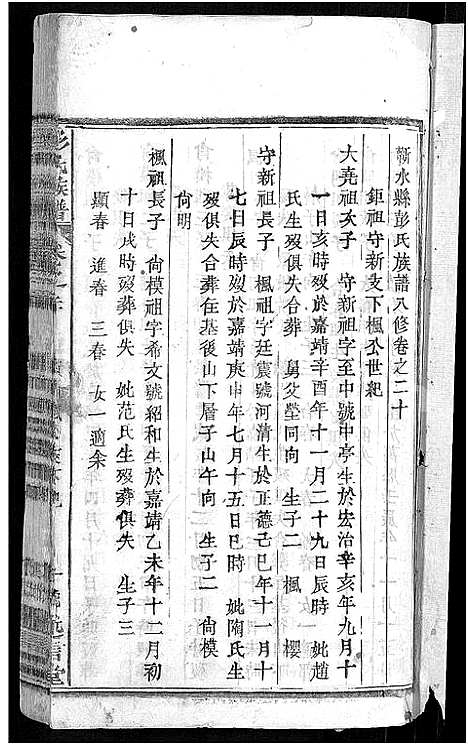 蘄水縣彭氏族譜八修卷之二十
鉅祖守新支下楓公世紀
大堯祖次子 守新祖字至中號中亭生於宏治辛亥年九月十
一日亥時歿於嘉靖辛酉年十一月二十九日辰時 妣趙
氏生歿俱失合葬 舅父塋同向 生子二 楓 櫻
守新祖長子 楓祖字廷宸號河清生於正德己巳年十一月十
七日辰時歿於嘉靖庚申年七月十五日巳時 妣陶氏生
歿俱失合葬在基後山下層子山午向 生子二 尙模
尙明
楓祖長子 尙模祖字希文號紹和生於嘉靖乙未年十二月初
十日戌時歿葬俱失 妣范氏生歿葬俱失 生子三
顯春 進春 三春 女一適余
彭氏族譜